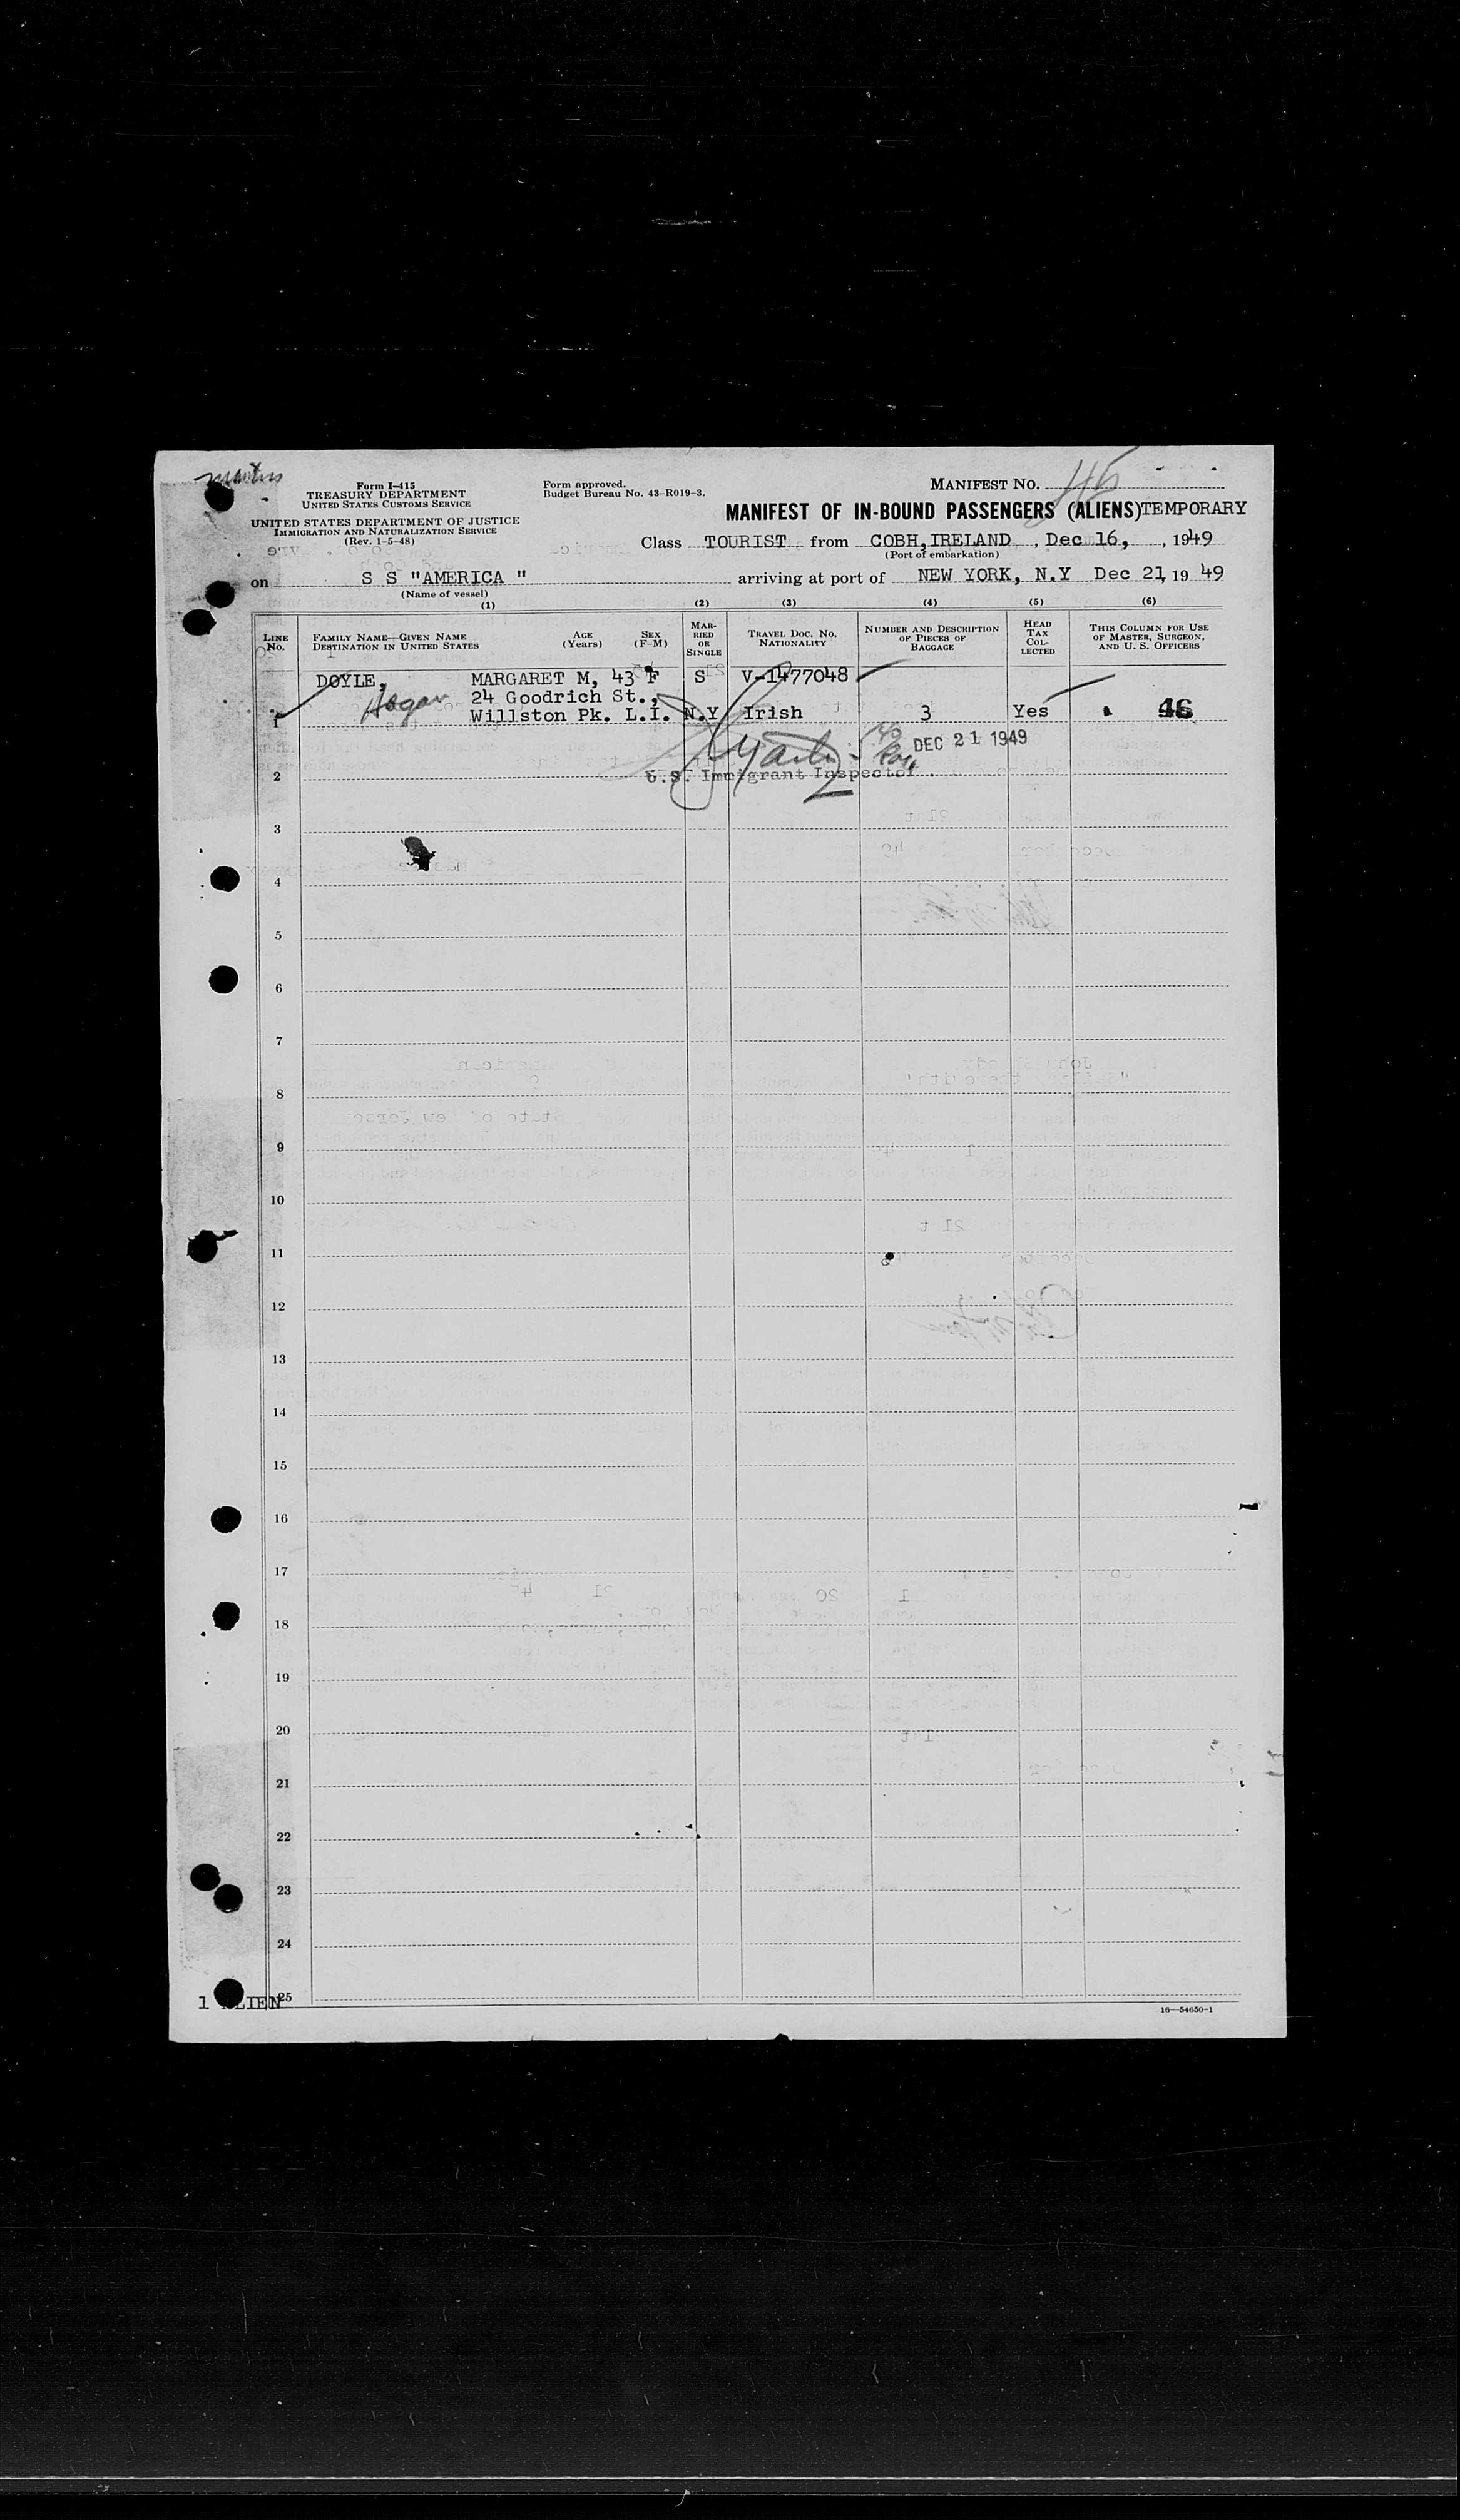 Form I-415
TREASURY DEPARTMENT
UNITED STATES CUSTOMS SERVICE
UNITED STATES DEPARTMENT OF JUSTICE
IMMIGRATION AND NATURALIZATION SERVICE
(Rev. 1-5-48)
Form approved.
Budget Bureau No. 43-R019-3.
MANIFEST NO. 46
MANIFEST OF IN-BOUND PASSENGERS (ALIENS) TEMPORARY
Class TOURIST from COBH, IRELAND, Dec 16, , 1949
(Port of embarkation)
on S S "AMERICA " arriving at port of NEW YORK, N.Y Dec 21, 19 49
(Name of vessel)
(1) (2) (3) (4) (5) (6)
LINE No. FAMILY NAME—GIVEN NAME DESTINATION IN UNITED STATES AGE (Years) SEX (F-M) MARRIED OR SINGLE TRAVEL DOC. NO. NATIONALITY NUMBER AND DESCRIPTION OF PIECES OF BAGGAGE HEAD TAX COLLECTED THIS COLUMN FOR USE OF MASTER, SURGEON, AND U. S. OFFICERS
DOYLE, MARGARET M, 43 F S V-1477048
Hogan 24 Goodrich St.,
1 Willston Pk. L.I. N.Y Irish 3 Yes 46
DEC 21 1949
2 U.S. Immigrant Inspector.
3
4
5
6
7
8
9
10
11
12
13
14
15
16
17
18
19
20
21
22
23
24
25
1 ALIEN
16—54650-1